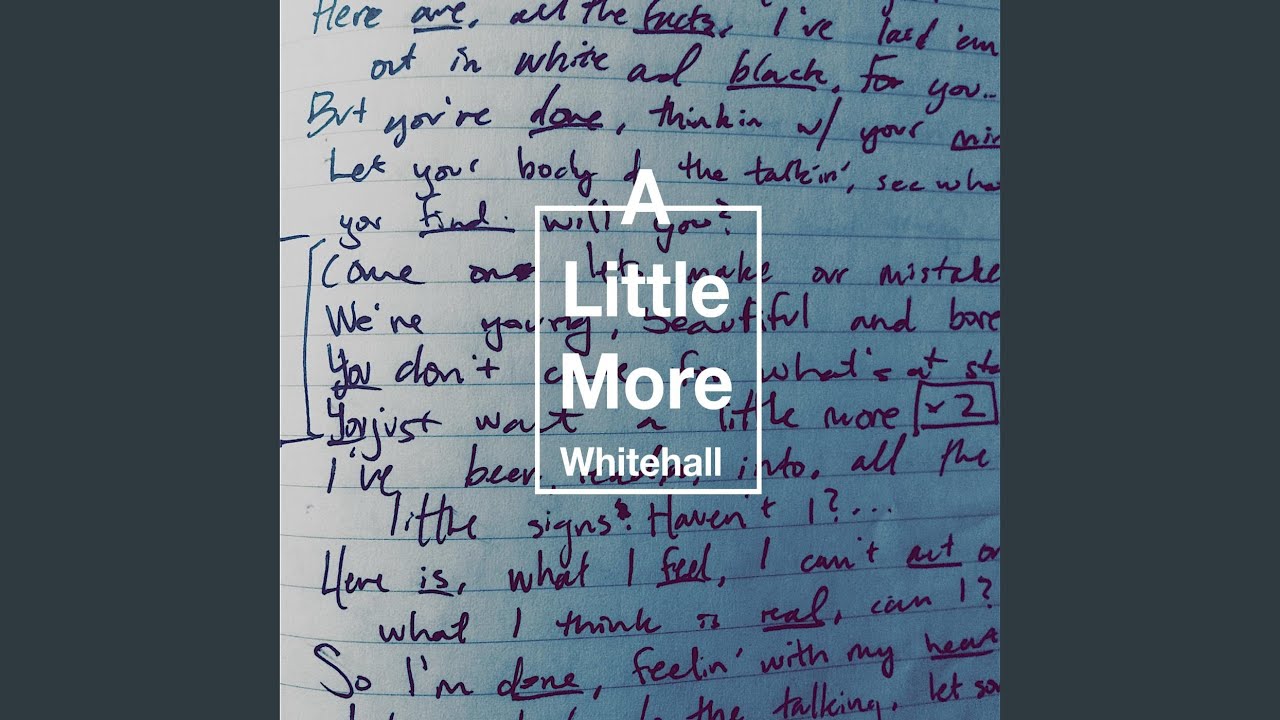 Here are, all the facts, I've laid 'em
out in white and black, for you...
But you're done, thinkin w/ your min
Let your body do the talkin', see wha
you find. will you?
Come on let's make our mistake
We're young, beautiful and bore
You don't care for what's at sta
You just want a little more x2
I've been into, all the
little signs. Haven't I?...
Here is, what I feel, I can't act on
what I think is real, can I?
So I'm done, feelin' with my heart
the talking, let so
A
Little
More
Whitehall